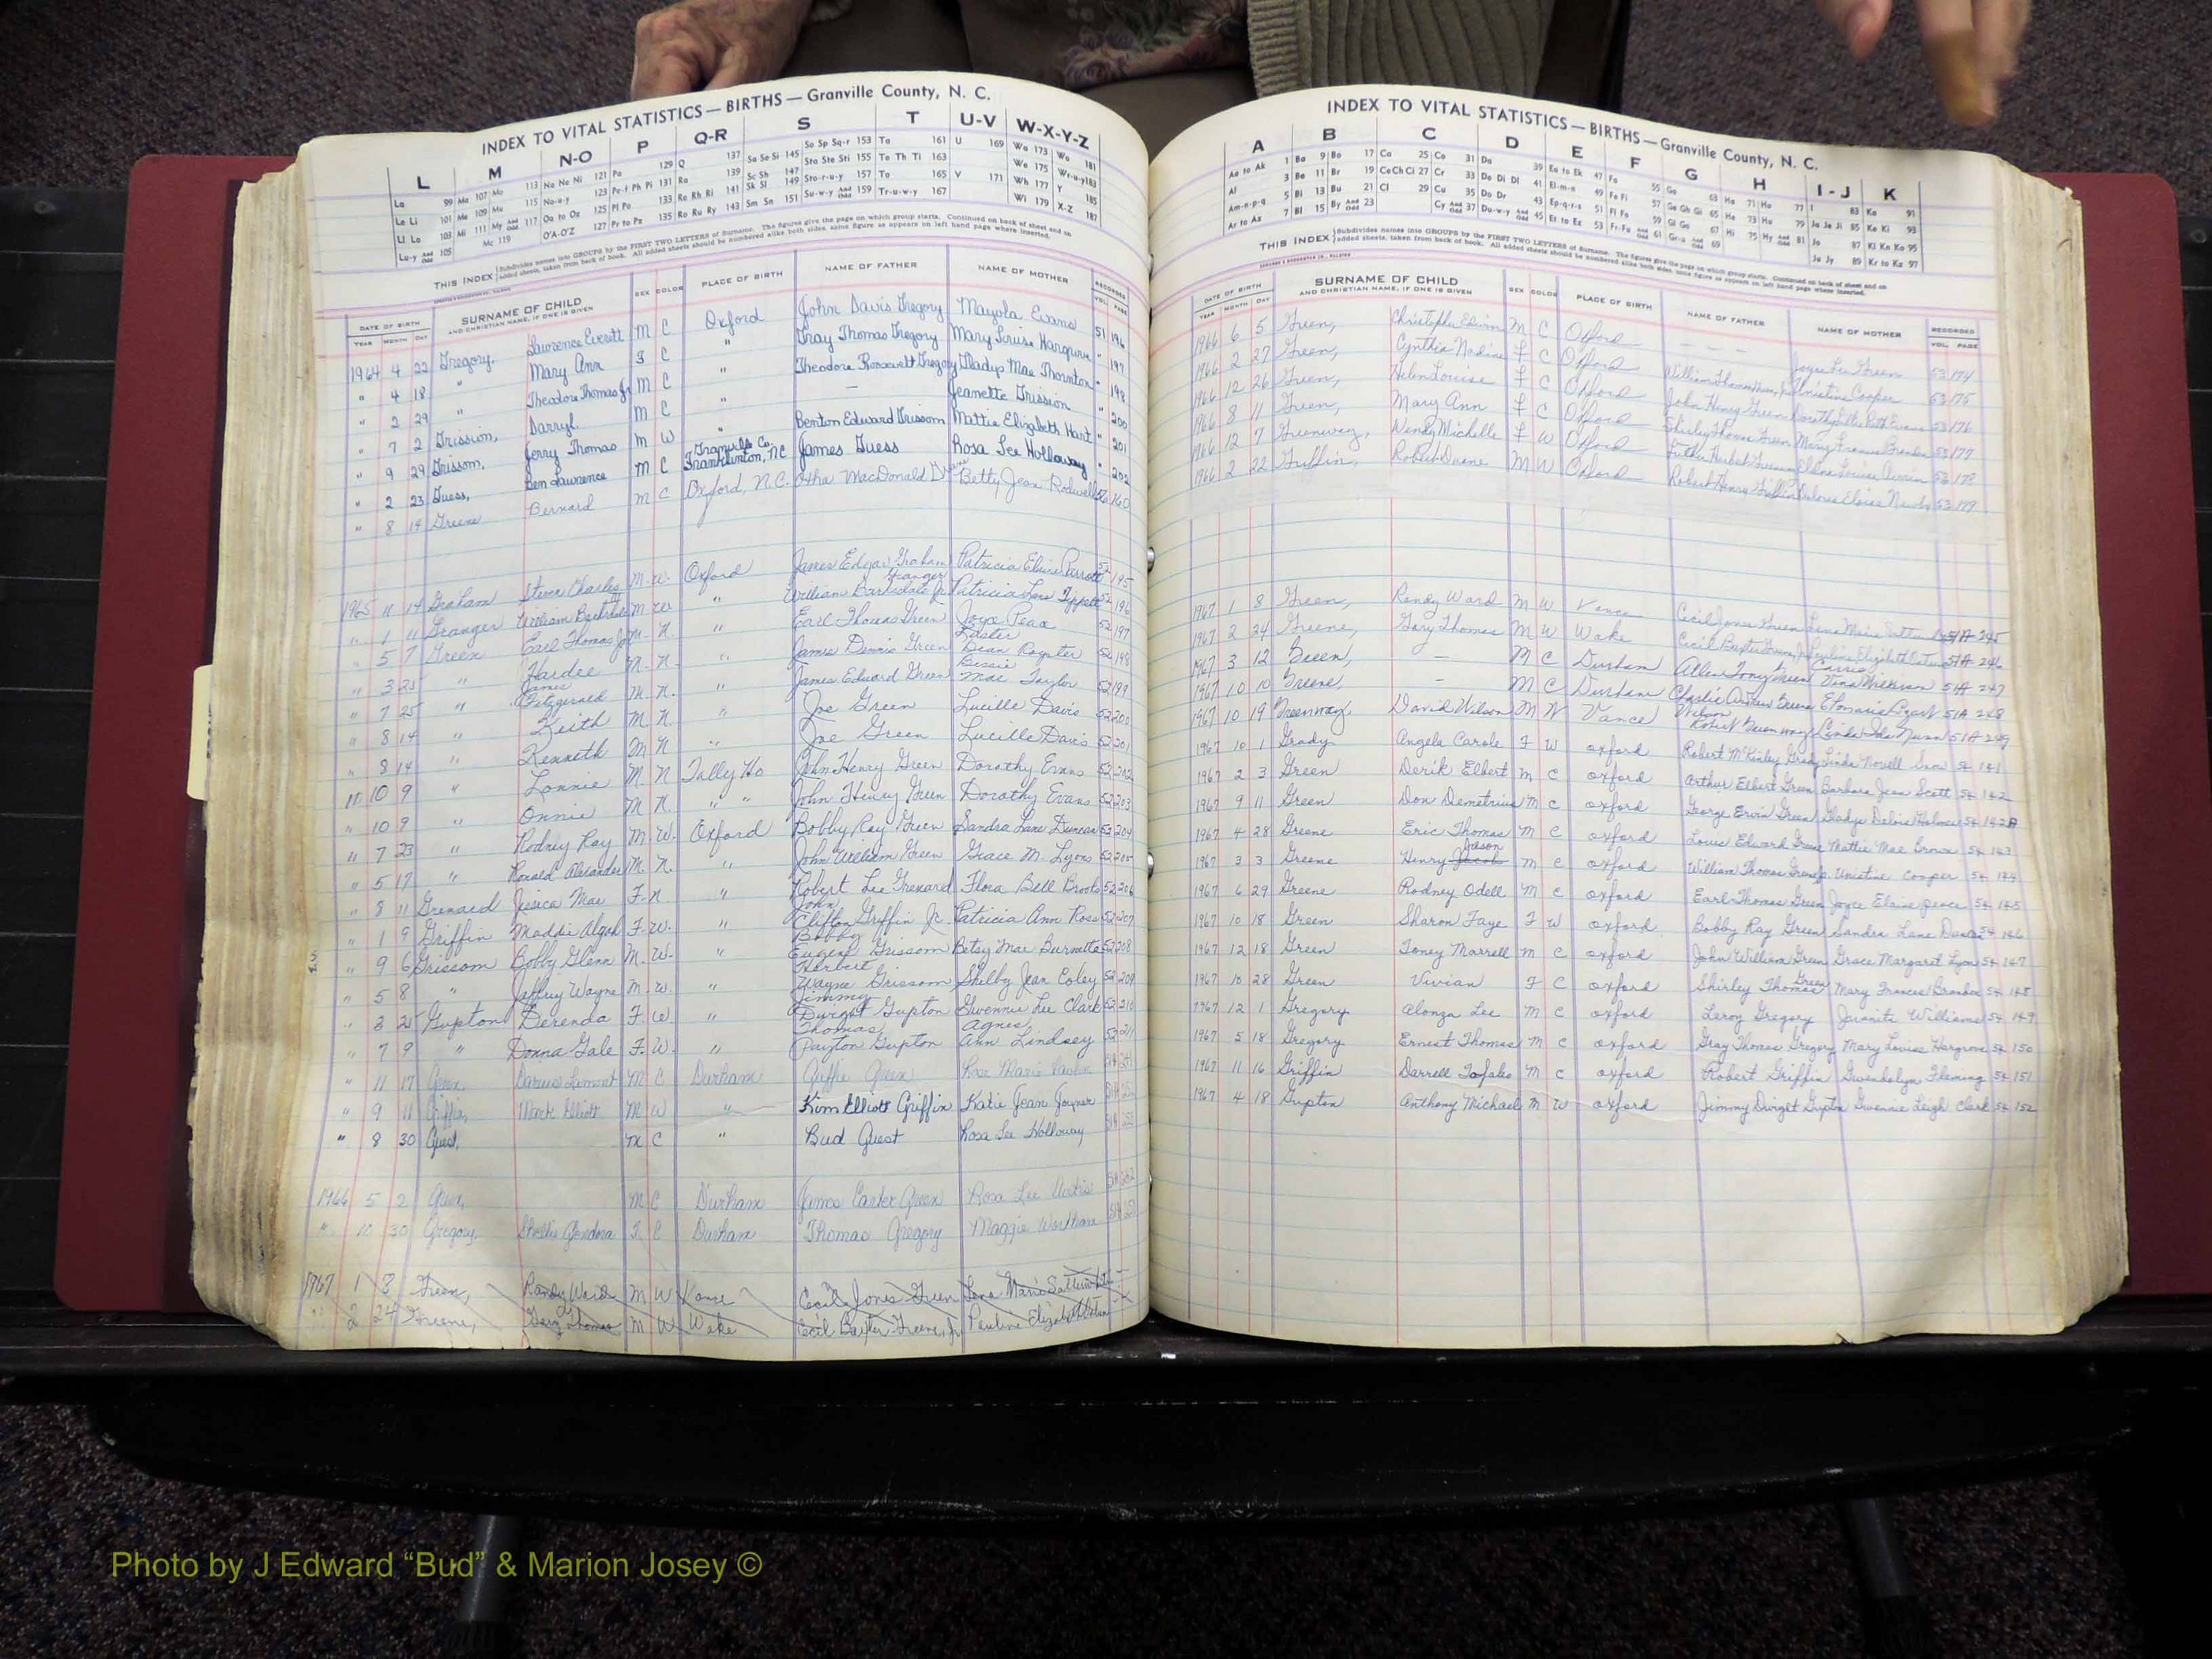 INDEX TO VITAL STATISTICS — BIRTHS — Granville County, N. C.
L M N-O P Q-R S T U-V W-X-Y-Z
La 99 Ma 107 Mo 113 Na Ne Ni 121 Pa 129 Q 137 Sa Se Si 145 So Sp Sq-r 153 Ta 161 U 169 Wa 173 Wo 181
Le Li 101 Me 109 Mu 115 No-u-y 123 Pe-f Ph Pi 131 Ra 139 Sc Sh 147 Sta Ste Sti 155 Te Th Ti 163 We 175 Wr-u-y 183
Ll Lo 103 Mi 111 My And Odd 117 Oa to Oz 125 Pl Po 133 Re Rh Ri 141 Sk Sl 149 Sto-r-u-y 157 To 165 V 171 Wh 177 Y 185
Lu-y And Odd 105 Mc 119 O'A-O'Z 127 Pr to Pz 135 Ro Ru Ry 143 Sm Sn 151 Su-w-y And Odd 159 Tr-u-w-y 167 Wi 179 X-Z 187
THIS INDEX Subdivides names into GROUPS by the FIRST TWO LETTERS of Surname. The figures give the page on which group starts. Continued on back of sheet and on
added sheets, taken from back of book. All added sheets should be numbered alike both sides, same figure as appears on left hand page where inserted.
DATE OF BIRTH SURNAME OF CHILD SEX COLOR PLACE OF BIRTH NAME OF FATHER NAME OF MOTHER RECORDED
YEAR MONTH DAY AND CHRISTIAN NAME, IF ONE IS GIVEN VOL. PAGE
1964 4 22 Gregory, Lawrence Everett M C Oxford John Davis Gregory Mayola Evans 51 196
" 4 18 " Mary Ann F C " Gray Thomas Gregory Mary Louise Hargrove " 197
" 2 29 " Theodore Thomas Jr M C " Theodore Roosevelt Gregory Gladys Mae Thornton " 198
" 7 2 Grission, Darryl M C " — Jeanette Grission " 200
" 9 29 Grissom, Jerry Thomas M W " Benton Edward Grissom Mattie Elizabeth Hart " 201
" 2 23 Guess, Ben Lawrence M C Granville Co. Franklinton, NC James Guess Rosa Lee Holloway " 202
" 8 14 Greene Bernard M C Oxford, N.C. Otha MacDonald Greene Betty Jean Rodwell 160
1965 11 14 Graham Steven Charles M. W. Oxford James Edgar Graham Patricia Elaine Parrott 52 195
" 1 11 Granger William Barksdale III M W " William Barksdale Granger Jr Patricia Lane Tippett 52 196
" 5 7 Green Earl Thomas Jr M. N. " Earl Thomas Green Joyce Peace 52 197
" 3 25 " Hardee M. N. " James Dennis Green Easter Dean Royster 52 198
" 7 25 " James Fitzgerald M. N. " James Edward Green Bessie Mae Taylor 52 199
" 8 14 " Keith M N " Joe Green Lucille Davis 52 200
" 8 14 " Kenneth M N " Joe Green Lucille Davis 52 201
" 10 9 " Lonnie M. N Tally Ho John Henry Green Dorothy Evans 52 202
" 10 9 " Onnie M N. " " John Henry Green Dorothy Evans 52 203
" 7 23 " Rodney Ray M. W. Oxford Bobby Ray Green Sandra Lane Duncan 52 204
" 5 17 " Ronald Alexander M. N. " John William Green Grace M. Lyons 52 205
" 8 11 Grenard Jesica Mae F. N " Robert Lee Grenard Flora Bell Brooks 52 206
" 1 9 Griffin Maddie F. W. " John Clifton Griffin Jr. Patricia Ann Ross 52 207
" 9 6 Grissom Bobby Glenn M. W. " Bobby Eugene Grissom Betsy Mae Burnette 52 208
" 5 8 " Jeffrey Wayne M. W. " Herbert Wayne Grissom Shelby Jean Coley 52 209
" 3 25 Gupton Derenda F. W. " Jimmy Dwight Gupton Gwennie Lee Clark 52 210
" 7 9 " Donna Gale F. W. " Thomas Payton Gupton Agnes Ann Lindsey 52 211
" 11 17 Green, Darius Lamont M C Durham Green
" 9 11 Griffin, Mark Elliott M W " Kim Elliott Griffin Katie Jean Joyner
" 8 30 Guest, M C " Bud Guest Rosa Lee Holloway
1966 5 2 Green, M C Durham James Carter Green Rosa Lee
" 10 30 Gregory, F. C Durham Thomas Gregory Maggie Wortham
1967 1 8 Green, Randy Ward M W Vance Cecil Jones Green Lena Marie
" 2 24 Greene, Gary Thomas M W Wake Cecil Baxter Greene, Jr Pauline Elizabeth
INDEX TO VITAL STATISTICS — BIRTHS — Granville County, N. C.
A B C D E F G H I-J K
Aa to Ak 1 Ba 9 Bo 17 Ca 25 Co 31 Da 39 Ea to Ek 47 Fa 55 Ga 63 Ha 71 Ho 77 I 83 Ka 91
Al 3 Be 11 Br 19 Ce Ch Ci 27 Cr 33 De Di Dl 41 El-m-n 49 Fe Fi 57 Ge Gh Gi 65 He 73 Hu 79 Ja Je Ji 85 Ke Ki 93
Am-n-p-q 5 Bi 13 Bu 21 Cl 29 Cu 35 Do Dr 43 Ep-q-r-s 51 Fl Fo 59 Gl Go 67 Hi 75 Hy And Odd 81 Jo 87 Kl Kn Ko 95
Ar to Az 7 Bl 15 By And Odd 23 Cy And Odd 37 Du-w-y And Odd 45 Et to Ez 53 Fr-Fu And Odd 61 Gr-u And Odd 69 Ju Jy 89 Kr to Kz 97
THIS INDEX Subdivides names into GROUPS by the FIRST TWO LETTERS of Surname. The figures give the page on which group starts. Continued on back of sheet and on
added sheets, taken from back of book. All added sheets should be numbered alike both sides, same figure as appears on left hand page where inserted.
DATE OF BIRTH SURNAME OF CHILD SEX COLOR PLACE OF BIRTH NAME OF FATHER NAME OF MOTHER RECORDED
YEAR MONTH DAY AND CHRISTIAN NAME, IF ONE IS GIVEN VOL. PAGE
1966 6 5 Green, Christopher Edwin M C Oxford — — — Joyce Green 53 174
1966 2 27 Green, Cynthia Nadine F C Oxford William Thomas Green, Jr Christine Cooper 53 175
1966 12 26 Green, Helen Louise F C Oxford John Henry Green Dorothy Ruth Evans 53 176
1966 8 11 Green, Mary Ann F C Oxford Shirley Thomas Green Mary Frances Brandon 53 177
1966 12 7 Greenway, Wendy Michelle F W Oxford Luther Herbert Louise 53 178
1966 2 22 Griffin, Robert Duane M W Oxford Robert Henry Griffin Delores Eloise 53 179
1967 1 8 Green, Randy Ward M W Vance Cecil Jones Green Lena Marie 51A 245
1967 2 24 Greene, Gary Thomas M W Wake Cecil Baxter Greene, Jr Pauline Elizabeth 51A 246
1967 3 12 Green, — M C Durham Allen Tony Green Carrie 51A 247
1967 10 10 Greene, — M C Durham Charlie Andrew Greene 51A 248
1967 10 19 Greenway, David Wilson M W Vance Wilson Robert Greenway Linda 51A 249
1967 10 1 Grady Angela Carole F W oxford Robert McKinley Grady Linda Novell Snow 54 141
1967 2 3 Green Derik Elbert m c oxford Arthur Elbert Green Barbara Jean Scott 54 142
1967 9 11 Green Don Demetrius m c oxford George Ervin Green Gladys Delois Holmes 54 142A
1967 4 28 Greene Eric Thomas m c oxford Louis Edward Greene Mattie Mae Brown 54 143
1967 3 3 Greene Henry Jacobs Jason m c oxford William Thomas Greene Jr. Cooper 54 144
1967 6 29 Greene Rodney Odell m c oxford Earl Thomas Green Joyce Elaise peace 54 145
1967 10 18 Green Sharon Faye F W oxford Bobby Ray Green Sandra Lane Duncan 54 146
1967 12 18 Green Toney Marrell m c oxford John William Green Grace Margaret Lyon 54 147
1967 10 28 Green Vivian F C oxford Shirley Thomas Green Mary Frances Brandon 54 148
1967 12 1 Gregory Alonza Lee m c oxford Leroy Gregory Juanita Williams 54 149
1967 5 18 Gregory Ernest Thomas m c oxford Gray Thomas Gregory Mary Louise Hargrove 54 150
1967 11 16 Griffin Darrell m c oxford Robert Griffin Gwendolyn Fleming 54 151
1967 4 18 Gupton Anthony Michael m w oxford Jimmy Dwight Gupton Gwennie Leigh Clark 54 152
Photo by J Edward “Bud” & Marion Josey ©